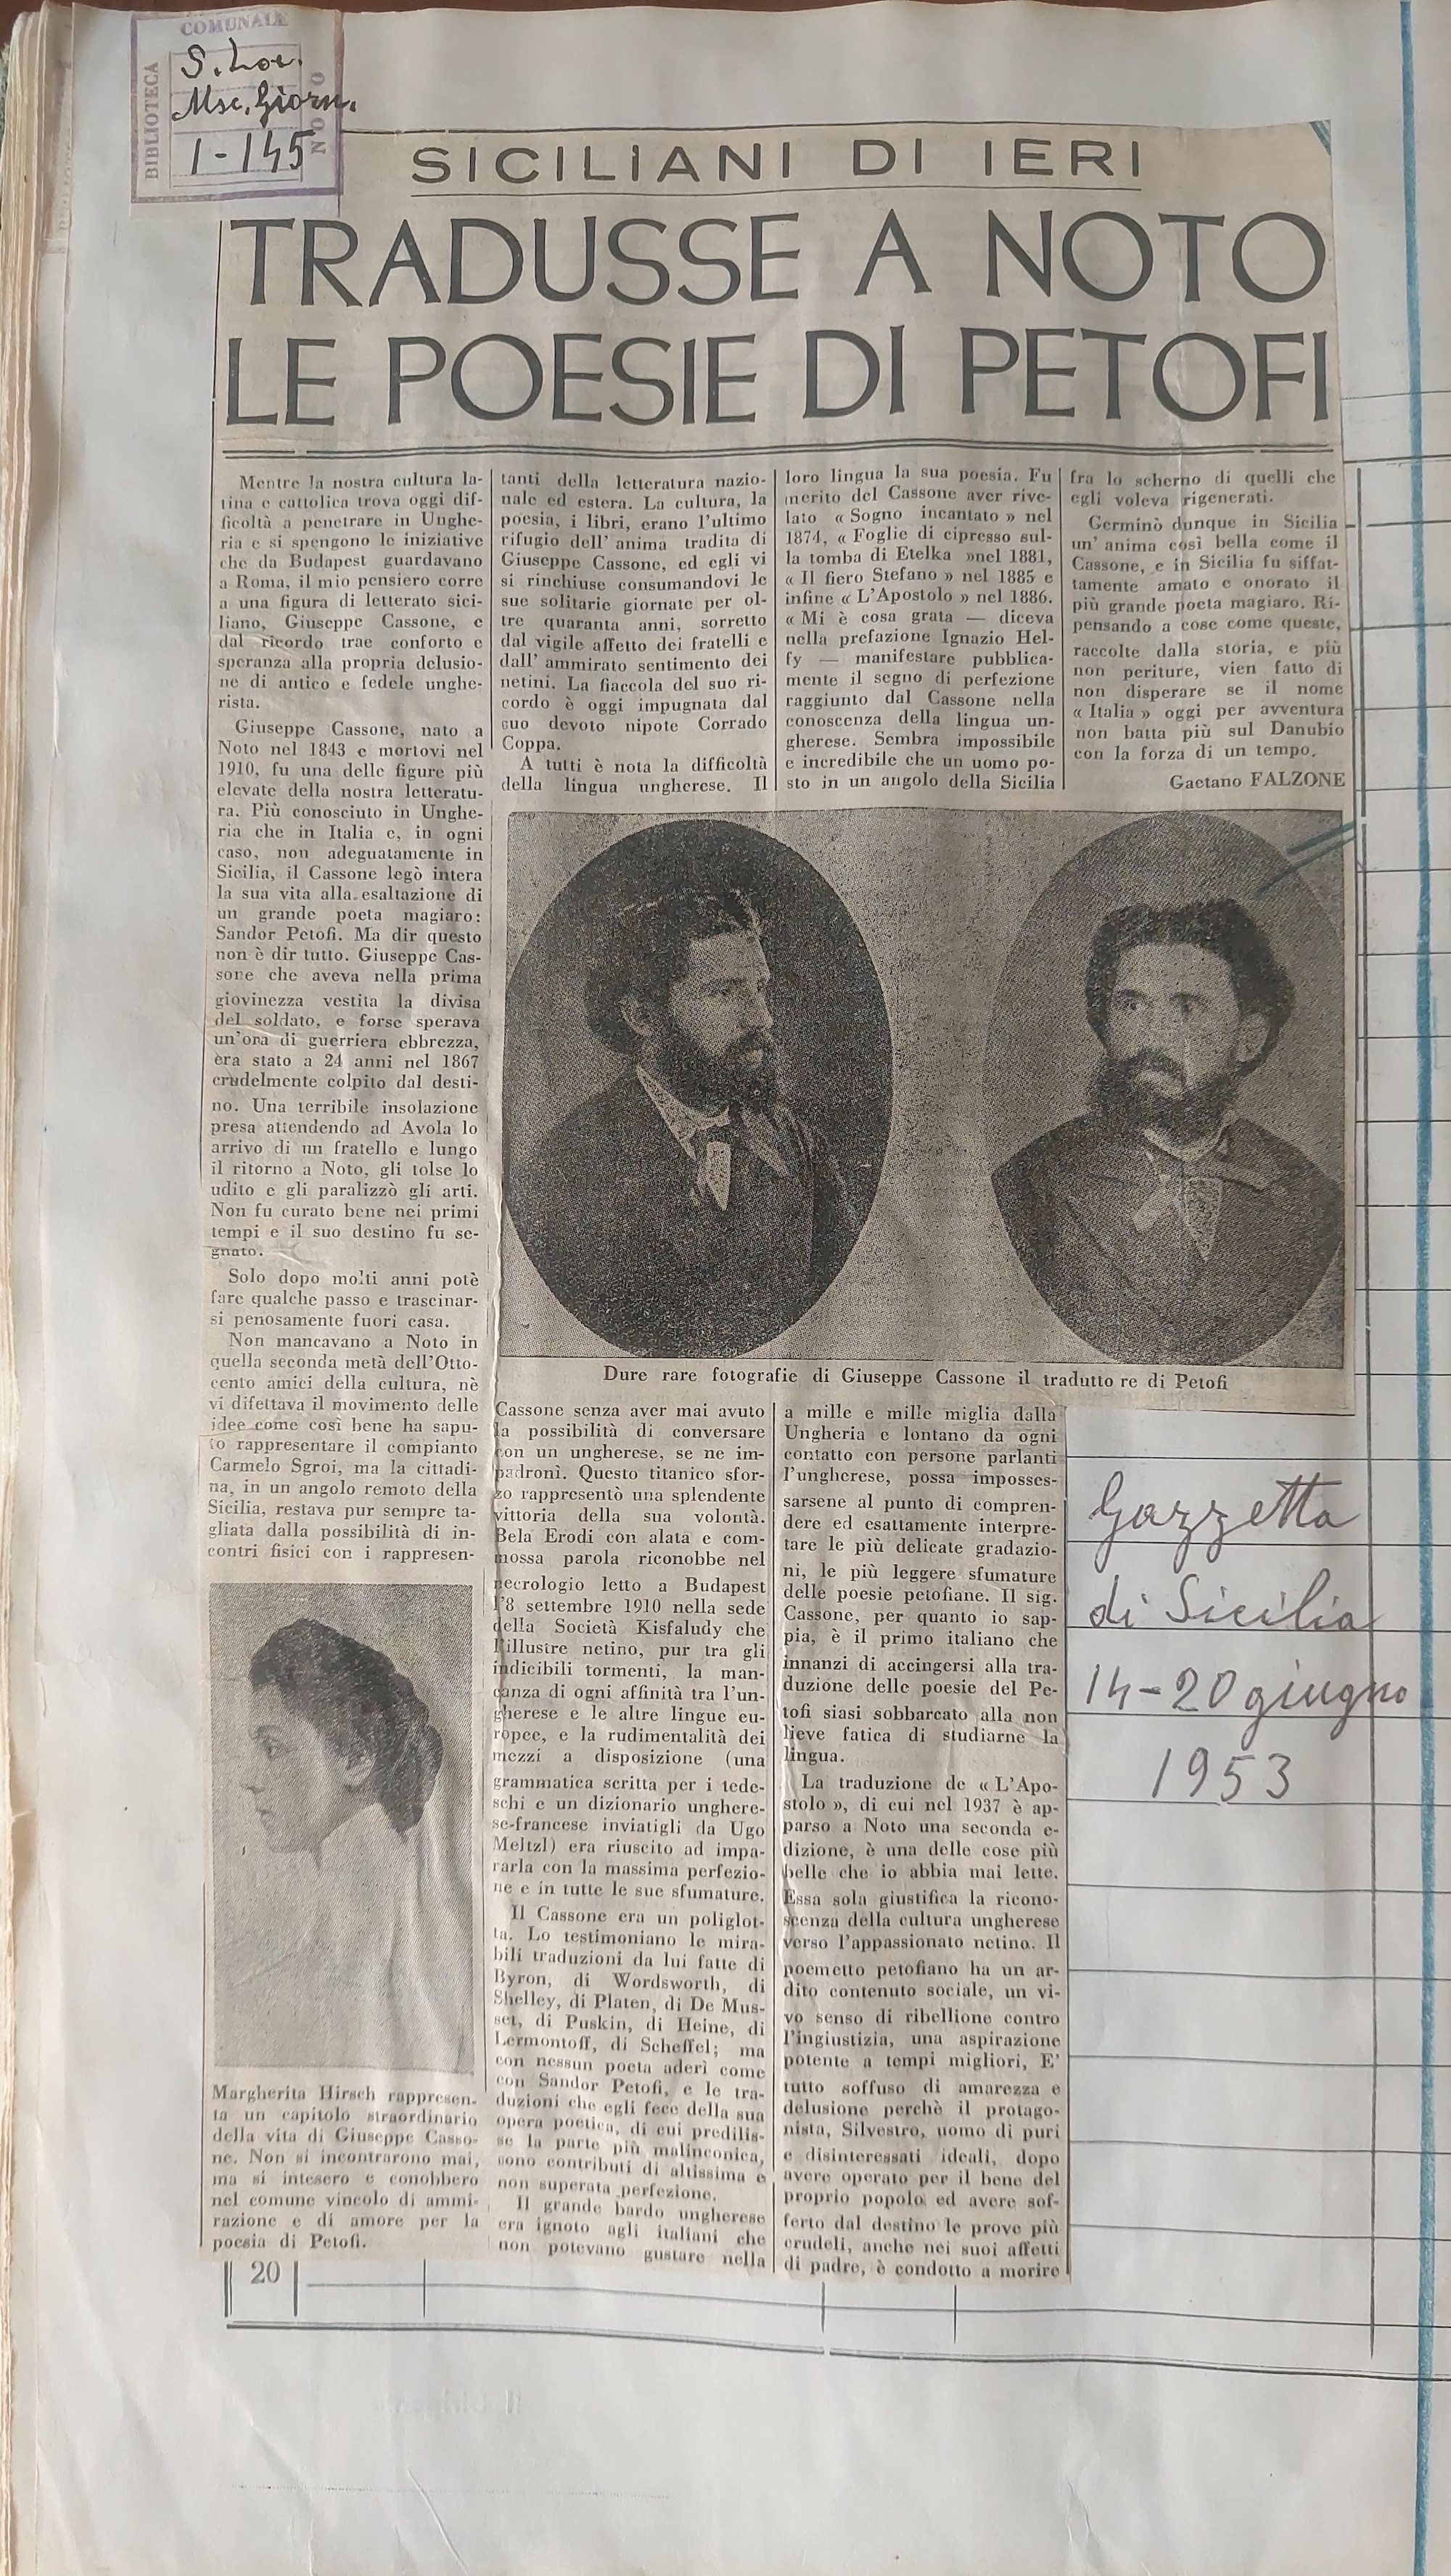 COMUNALE
BIBLIOTECA
NOTO
S. Loc.
Msc. Giorn.
1-145
SICILIANI DI IERI
TRADUSSE A NOTO
LE POESIE DI PETOFI
Mentre la nostra cultura la-
tina e cattolica trova oggi dif-
ficoltà a penetrare in Unghe-
ria e si spengono le iniziative
che da Budapest guardavano
a Roma, il mio pensiero corre
a una figura di letterato sici-
liano, Giuseppe Cassone, e
dal ricordo trae conforto e
speranza alla propria delusio-
ne di antico e fedele unghe-
rista.
Giuseppe Cassone, nato a
Noto nel 1843 e mortovi nel
1910, fu una delle figure più
elevate della nostra letteratu-
ra. Più conosciuto in Unghe-
ria che in Italia e, in ogni
caso, non adeguatamente in
Sicilia, il Cassone legò intera
la sua vita alla esaltazione di
un grande poeta magiaro:
Sandor Petofi. Ma dir questo
non è dir tutto. Giuseppe Cas-
sone che aveva nella prima
giovinezza vestita la divisa
del soldato, e forse sperava
un'ora di guerriera ebbrezza,
era stato a 24 anni nel 1867
crudelmente colpito dal desti-
no. Una terribile insolazione
presa attendendo ad Avola lo
arrivo di un fratello e lungo
il ritorno a Noto, gli tolse lo
udito e gli paralizzò gli arti.
Non fu curato bene nei primi
tempi e il suo destino fu se-
gnato.
Solo dopo molti anni potè
fare qualche passo e trascinar-
si penosamente fuori casa.
Non mancavano a Noto in
quella seconda metà dell'Otto-
cento amici della cultura, nè
vi difettava il movimento delle
idee come così bene ha sapu-
to rappresentare il compianto
Carmelo Sgroi, ma la cittadi-
na, in un angolo remoto della
Sicilia, restava pur sempre ta-
gliata dalla possibilità di in-
contri fisici con i rappresen-
tanti della letteratura nazio-
nale ed estera. La cultura, la
poesia, i libri, erano l'ultimo
rifugio dell' anima tradita di
Giuseppe Cassone, ed egli vi
si rinchiuse consumandovi le
sue solitarie giornate per ol-
tre quaranta anni, sorretto
dal vigile affetto dei fratelli e
dall' ammirato sentimento dei
netini. La fiaccola del suo ri-
cordo è oggi impugnata dal
suo devoto nipote Corrado
Coppa.
A tutti è nota la difficoltà
della lingua ungherese. Il
Cassone senza aver mai avuto
la possibilità di conversare
con un ungherese, se ne im-
padronì. Questo titanico sfor-
zo rappresentò una splendente
vittoria della sua volontà.
Bela Erodi con alata e com-
mossa parola riconobbe nel
necrologio letto a Budapest
l'8 settembre 1910 nella sede
della Società Kisfaludy che
l'illustre netino, pur tra gli
indicibili tormenti, la man-
canza di ogni affinità tra l'un-
gherese e le altre lingue eu-
ropee, e la rudimentalità dei
mezzi a disposizione (una
grammatica scritta per i tede-
schi e un dizionario unghere-
se-francese inviatigli da Ugo
Meltzl) era riuscito ad impa-
rarla con la massima perfezio-
ne e in tutte le sue sfumature.
Il Cassone era un poliglot-
ta. Lo testimoniano le mira-
bili traduzioni da lui fatte di
Byron, di Wordsworth, di
Shelley, di Platen, di De Mus-
set, di Puskin, di Heine, di
Lermontoff, di Scheffel; ma
con nessun poeta aderì come
con Sandor Petofi, e le tra-
duzioni che egli fece della sua
opera poetica, di cui predilis-
se la parte più malinconica,
sono contributi di altissima e
non superata perfezione.
Il grande bardo ungherese
era ignoto agli italiani che
non potevano gustare nella
loro lingua la sua poesia. Fu
merito del Cassone aver rive-
lato « Sogno incantato » nel
1874, « Foglie di cipresso sul-
la tomba di Etelka »nel 1881,
« Il fiero Stefano » nel 1885 e
infine « L'Apostolo » nel 1886.
« Mi è cosa grata — diceva
nella prefazione Ignazio Hel-
fy — manifestare pubblica-
mente il segno di perfezione
raggiunto dal Cassone nella
conoscenza della lingua un-
gherese. Sembra impossibile
e incredibile che un uomo po-
sto in un angolo della Sicilia
a mille e mille miglia dalla
Ungheria e lontano da ogni
contatto con persone parlanti
l'ungherese, possa imposses-
sarsene al punto di compren-
dere ed esattamente interpre-
tare le più delicate gradazio-
ni, le più leggere sfumature
delle poesie petofiane. Il sig.
Cassone, per quanto io sap-
pia, è il primo italiano che
innanzi di accingersi alla tra-
duzione delle poesie del Pe-
tofi siasi sobbarcato alla non
lieve fatica di studiarne la
lingua.
La traduzione de « L'Apo-
stolo », di cui nel 1937 è ap-
parso a Noto una seconda e-
dizione, è una delle cose più
belle che io abbia mai lette.
Essa sola giustifica la ricono-
scenza della cultura ungherese
verso l'appassionato netino. Il
poemetto petofiano ha un ar-
dito contenuto sociale, un vi-
vo senso di ribellione contro
l'ingiustizia, una aspirazione
potente a tempi migliori, E'
tutto soffuso di amarezza e
delusione perchè il protago-
nista, Silvestro, uomo di puri
e disinteressati ideali, dopo
avere operato per il bene del
proprio popolo ed avere sof-
ferto dal destino le prove più
crudeli, anche nei suoi affetti
di padre, è condotto a morire
fra lo scherno di quelli che
egli voleva rigenerati.
Germinò dunque in Sicilia
un' anima così bella come il
Cassone, e in Sicilia fu siffat-
tamente amato e onorato il
più grande poeta magiaro. Ri-
pensando a cose come queste,
raccolte dalla storia, e più
non periture, vien fatto di
non disperare se il nome
« Italia » oggi per avventura
non batta più sul Danubio
con la forza di un tempo.
Gaetano FALZONE
Dure rare fotografie di Giuseppe Cassone il tradutto re di Petofi
Margherita Hirsch rappresen-
ta un capitolo straordinario
della vita di Giuseppe Casso-
ne. Non si incontrarono mai,
ma si intesero e conobbero
nel comune vincolo di ammi-
razione e di amore per la
poesia di Petofi.
Gazzetta
di Sicilia
14-20 giugno
1953
20